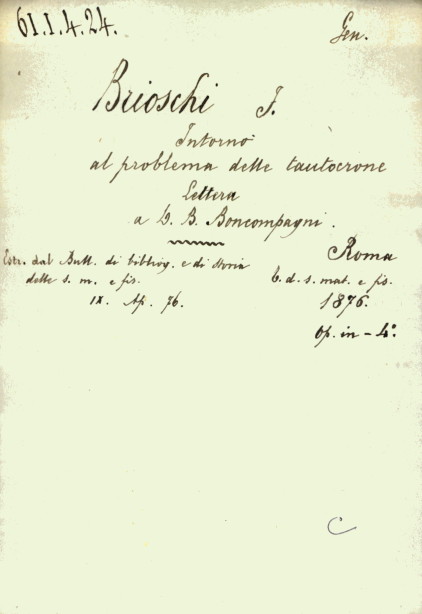 61.I.4.24.
Gen.
Brioschi F.
Intorno
al problema delle tautocrone
Lettera
a D. B. Boncompagni.
Estr. dal Bull. di bibliog. e di storia
delle s. m. e fis.
IX. Ap. 76.
Roma
T. d. s. mat. e fis.
1876.
Op. in-4°.
C